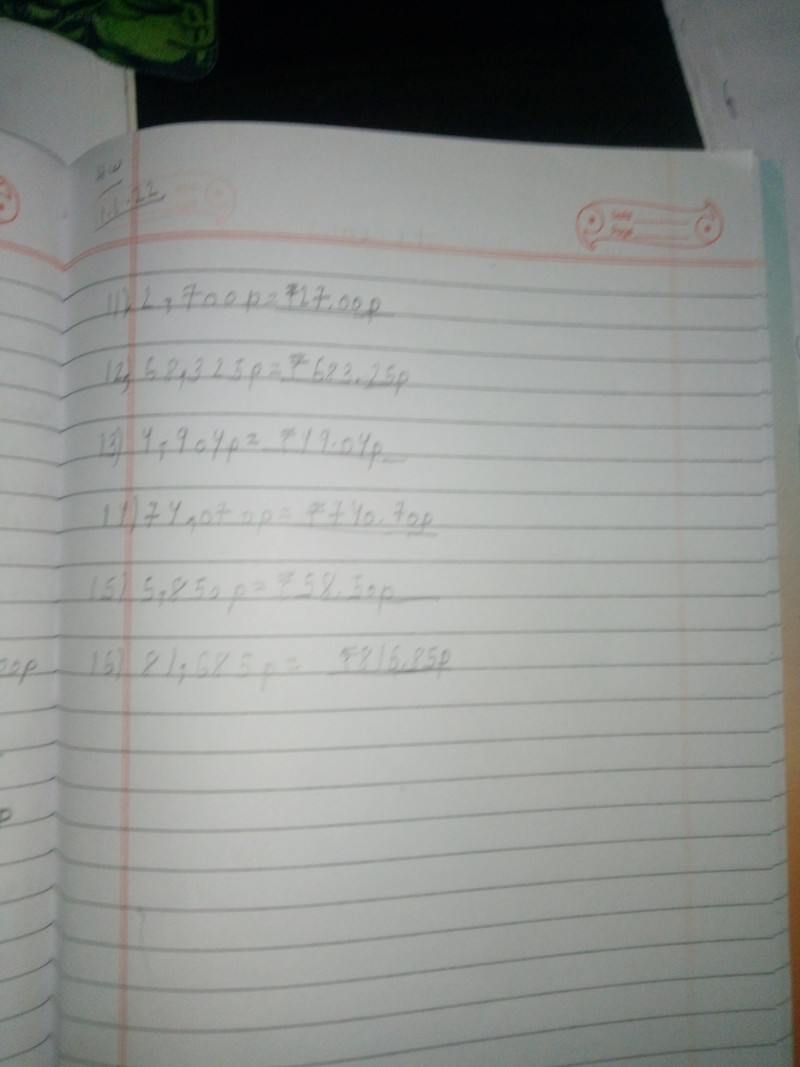 HW
11) 2,700p=₹27.00p
12) 68,325p=₹683.25p
13) 4,904p= ₹49.04p
14) 74,070p= ₹740.70p
15) 5,850p=₹58.50p
16) 81,685p= ₹816.85p
00p
p